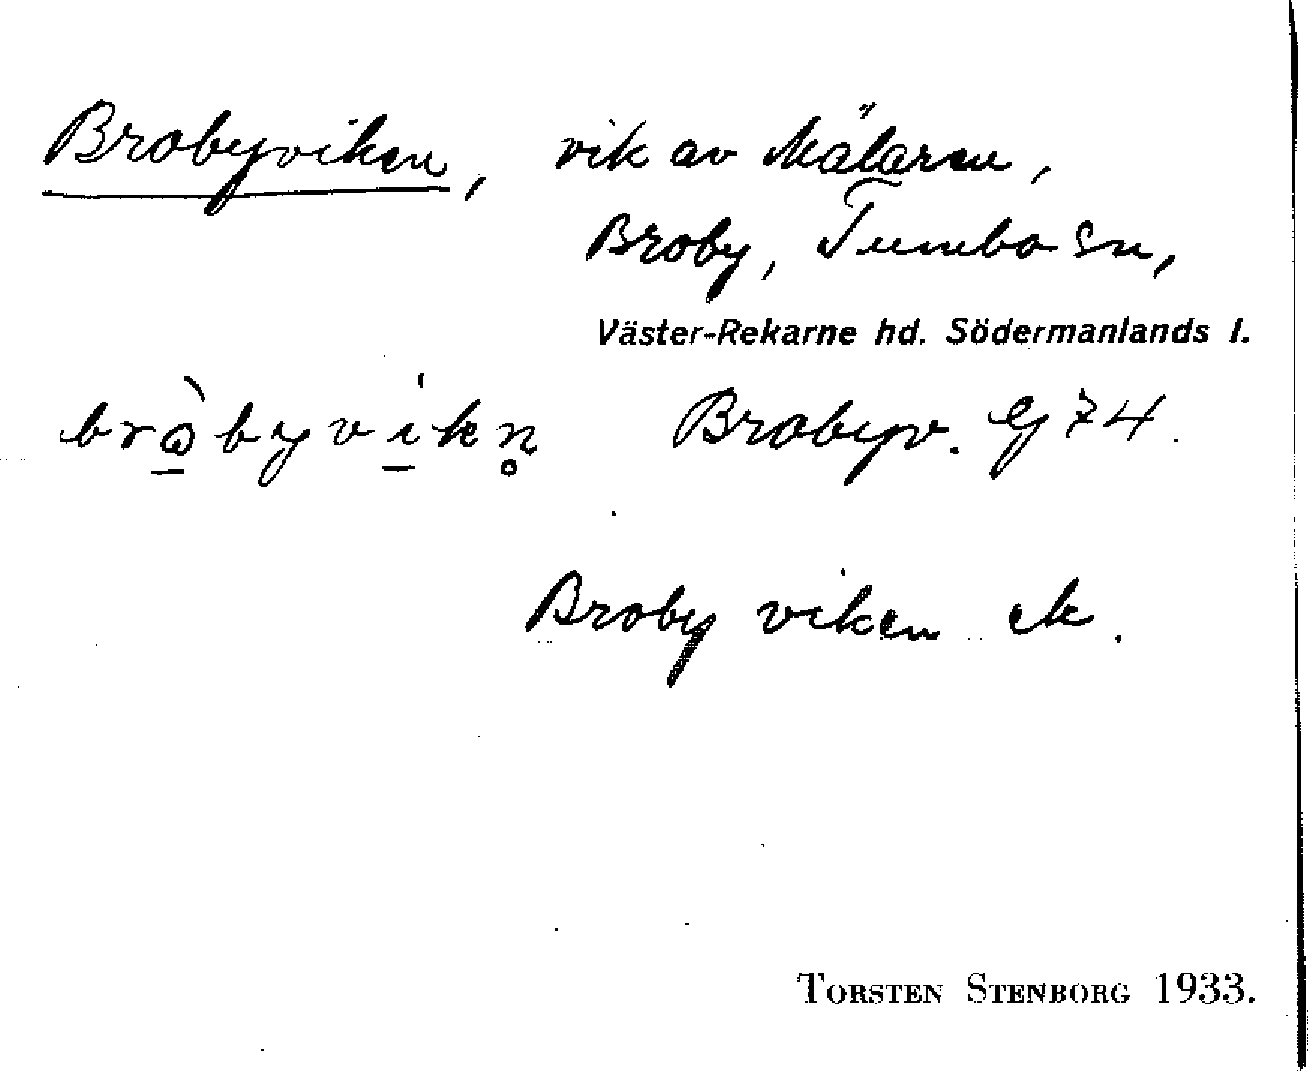 Brobyviken, vik av Mälaren,
Broby, Tumbo sn,
Väster-Rekarne hd. Södermanlands l.
brò̱byvi̱kn̥ Brobyv. G 74.
Broby viken ek.
TORSTEN STENBORG 1933.